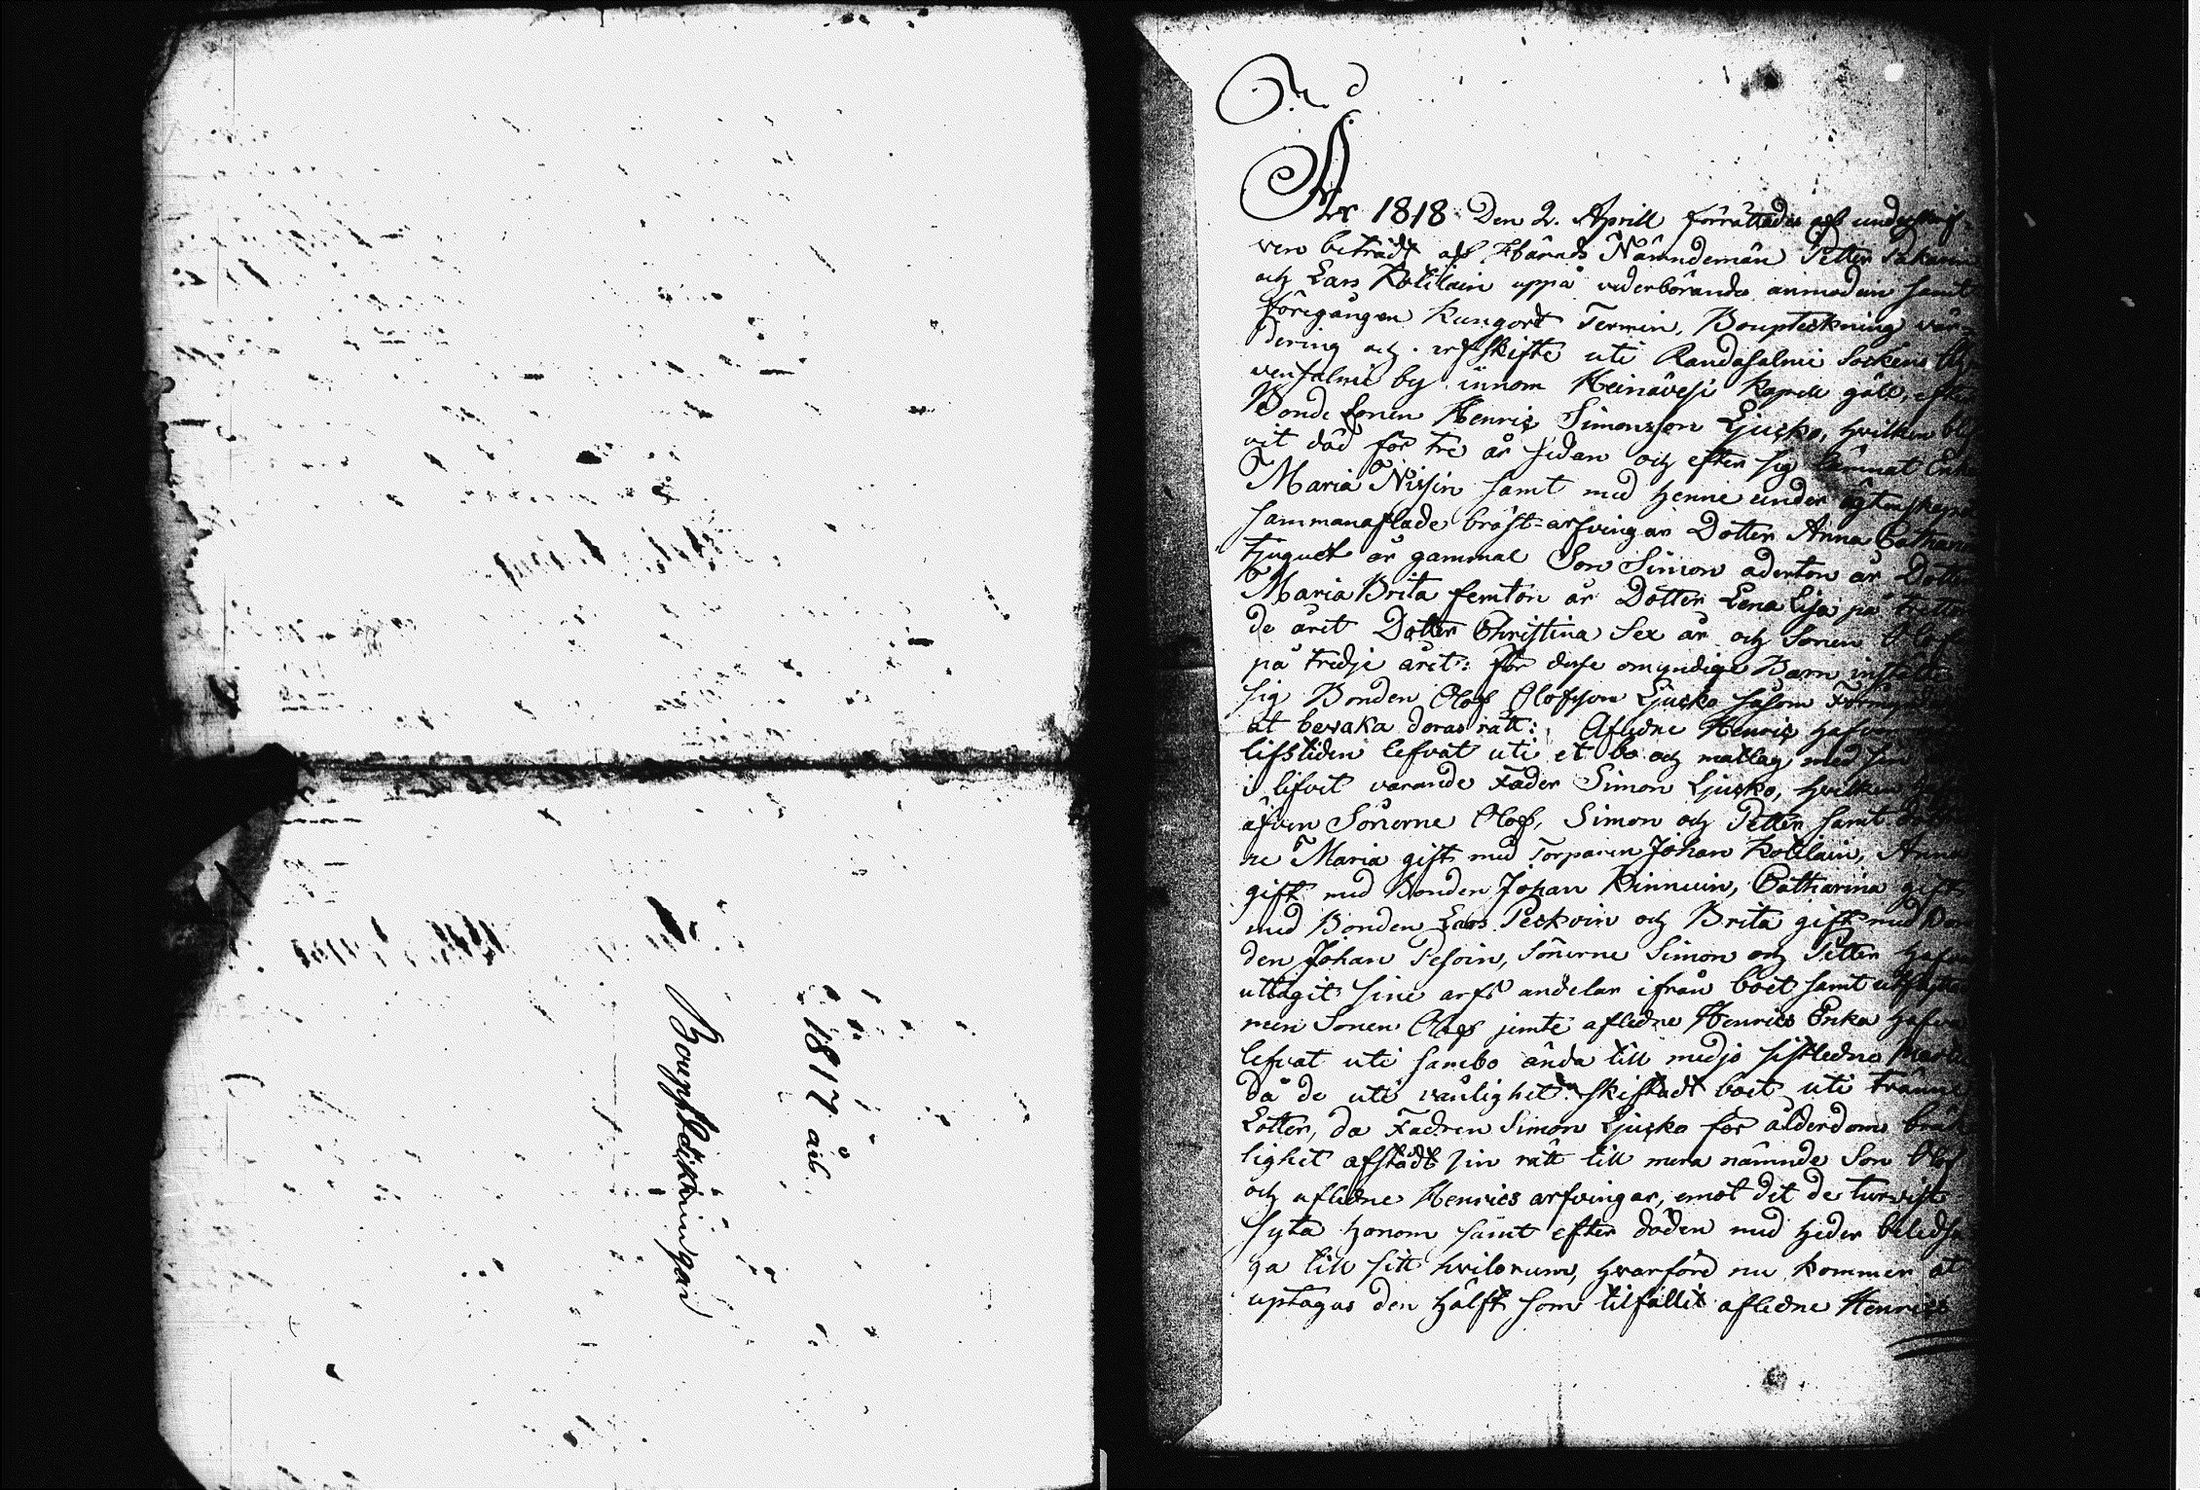 1817 års
Bouptekningar
N:o
År 1818 Den 2. Aprill förrättades af undertskrif-
ven biträdt af Härads Nämndemän Petter Pakarin
och Lars Kolilain uppå vederbörande anmodan samt
föregången kungord Termin, Boupteckning vär-
dering och arfskifte uti Randasalmi Sockens
vensalmi by innom Heinävesi Kapell gäll, efter
Bonde sonen Henric Simonsson Ljucko, hvilken blif
vit död för tre år sedan och efter sig lämnat Enka
Maria Nissin samt med henne under ägtenskapet
sammanaflade bröst-arfvingar Dotter Anna Catharina
tjuguet år gammal Son Simon aderton år Dotter
Maria Brita femton år Dotter Lena Lisa på tretton
de året Dotter Christina Sex år och Sonen Olof
på tredje året: för desse omyndige Barn instälte
sig Bonden Olof Olofsson Ljucko såsom Förmyndare
at bevaka deras rätt: Aflidne Henric hafver
lifstiden lefvat uti et bo och matlag med sin
i lifvet varande Fader Simon Ljucko, hvilken
äfven Sönerne Olof, Simon och Petter samt döttrar
ne Maria gift med Torparen Johan Kolilain, Anna
gift med Bonden Johan Kinnuin, Catharina gift
med Bonden Lars Peckoin och Brita gift med Bon
den Johan Pesoin, Sönerne Simon och Petter hafva
uttagit sine arfs andelar ifrån boet samt utflyttat
men Sonen Olof jemte aflidne Henrics Enka hafva
lefvat uti sambo ända till medjo sistledne Martii
då de uti vänlighet skiftadt boet uti tvänne
Lotter, då Fadren Simon Ljucko för ålderdoms bräck
lighet afstådt sin rätt till mera nämnde Son Olof
och aflidne Henrics arfvingar, emot det de
syta honom samt efter döden med heder beledsa
ga till sitt hvilorum, hvarföre nu kommer at
uptagas den hälft som tilfallit aflidne Henrics